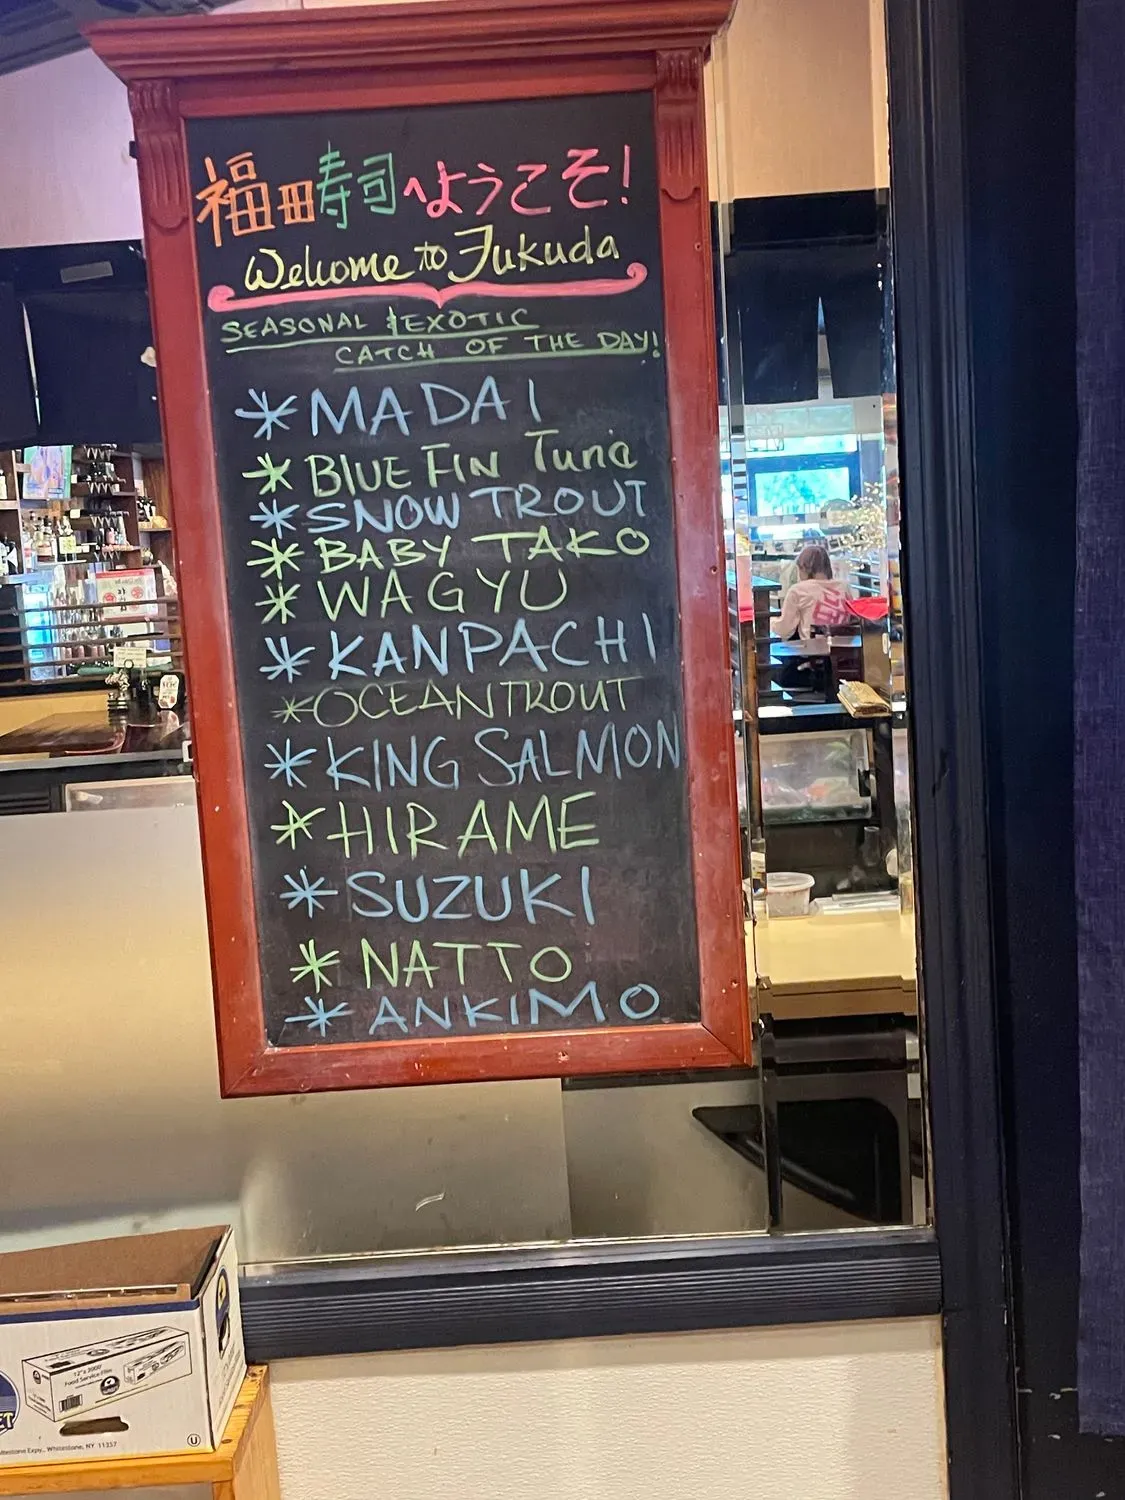 福田寿司へようこそ!
Welcome to Fukuda
SEASONAL & EXOTIC
CATCH OF THE DAY!
* MADAI
* BLUE FIN Tuna
* SNOW TROUT
* BABY TAKO
* WAGYU
* KANPACHI
* OCEAN TROUT
* KING SALMON
* HIRAME
* SUZUKI
* NATTO
* ANKIMO
12" x 2000'
Food Service Film
Expy., Whitestone, NY 11357